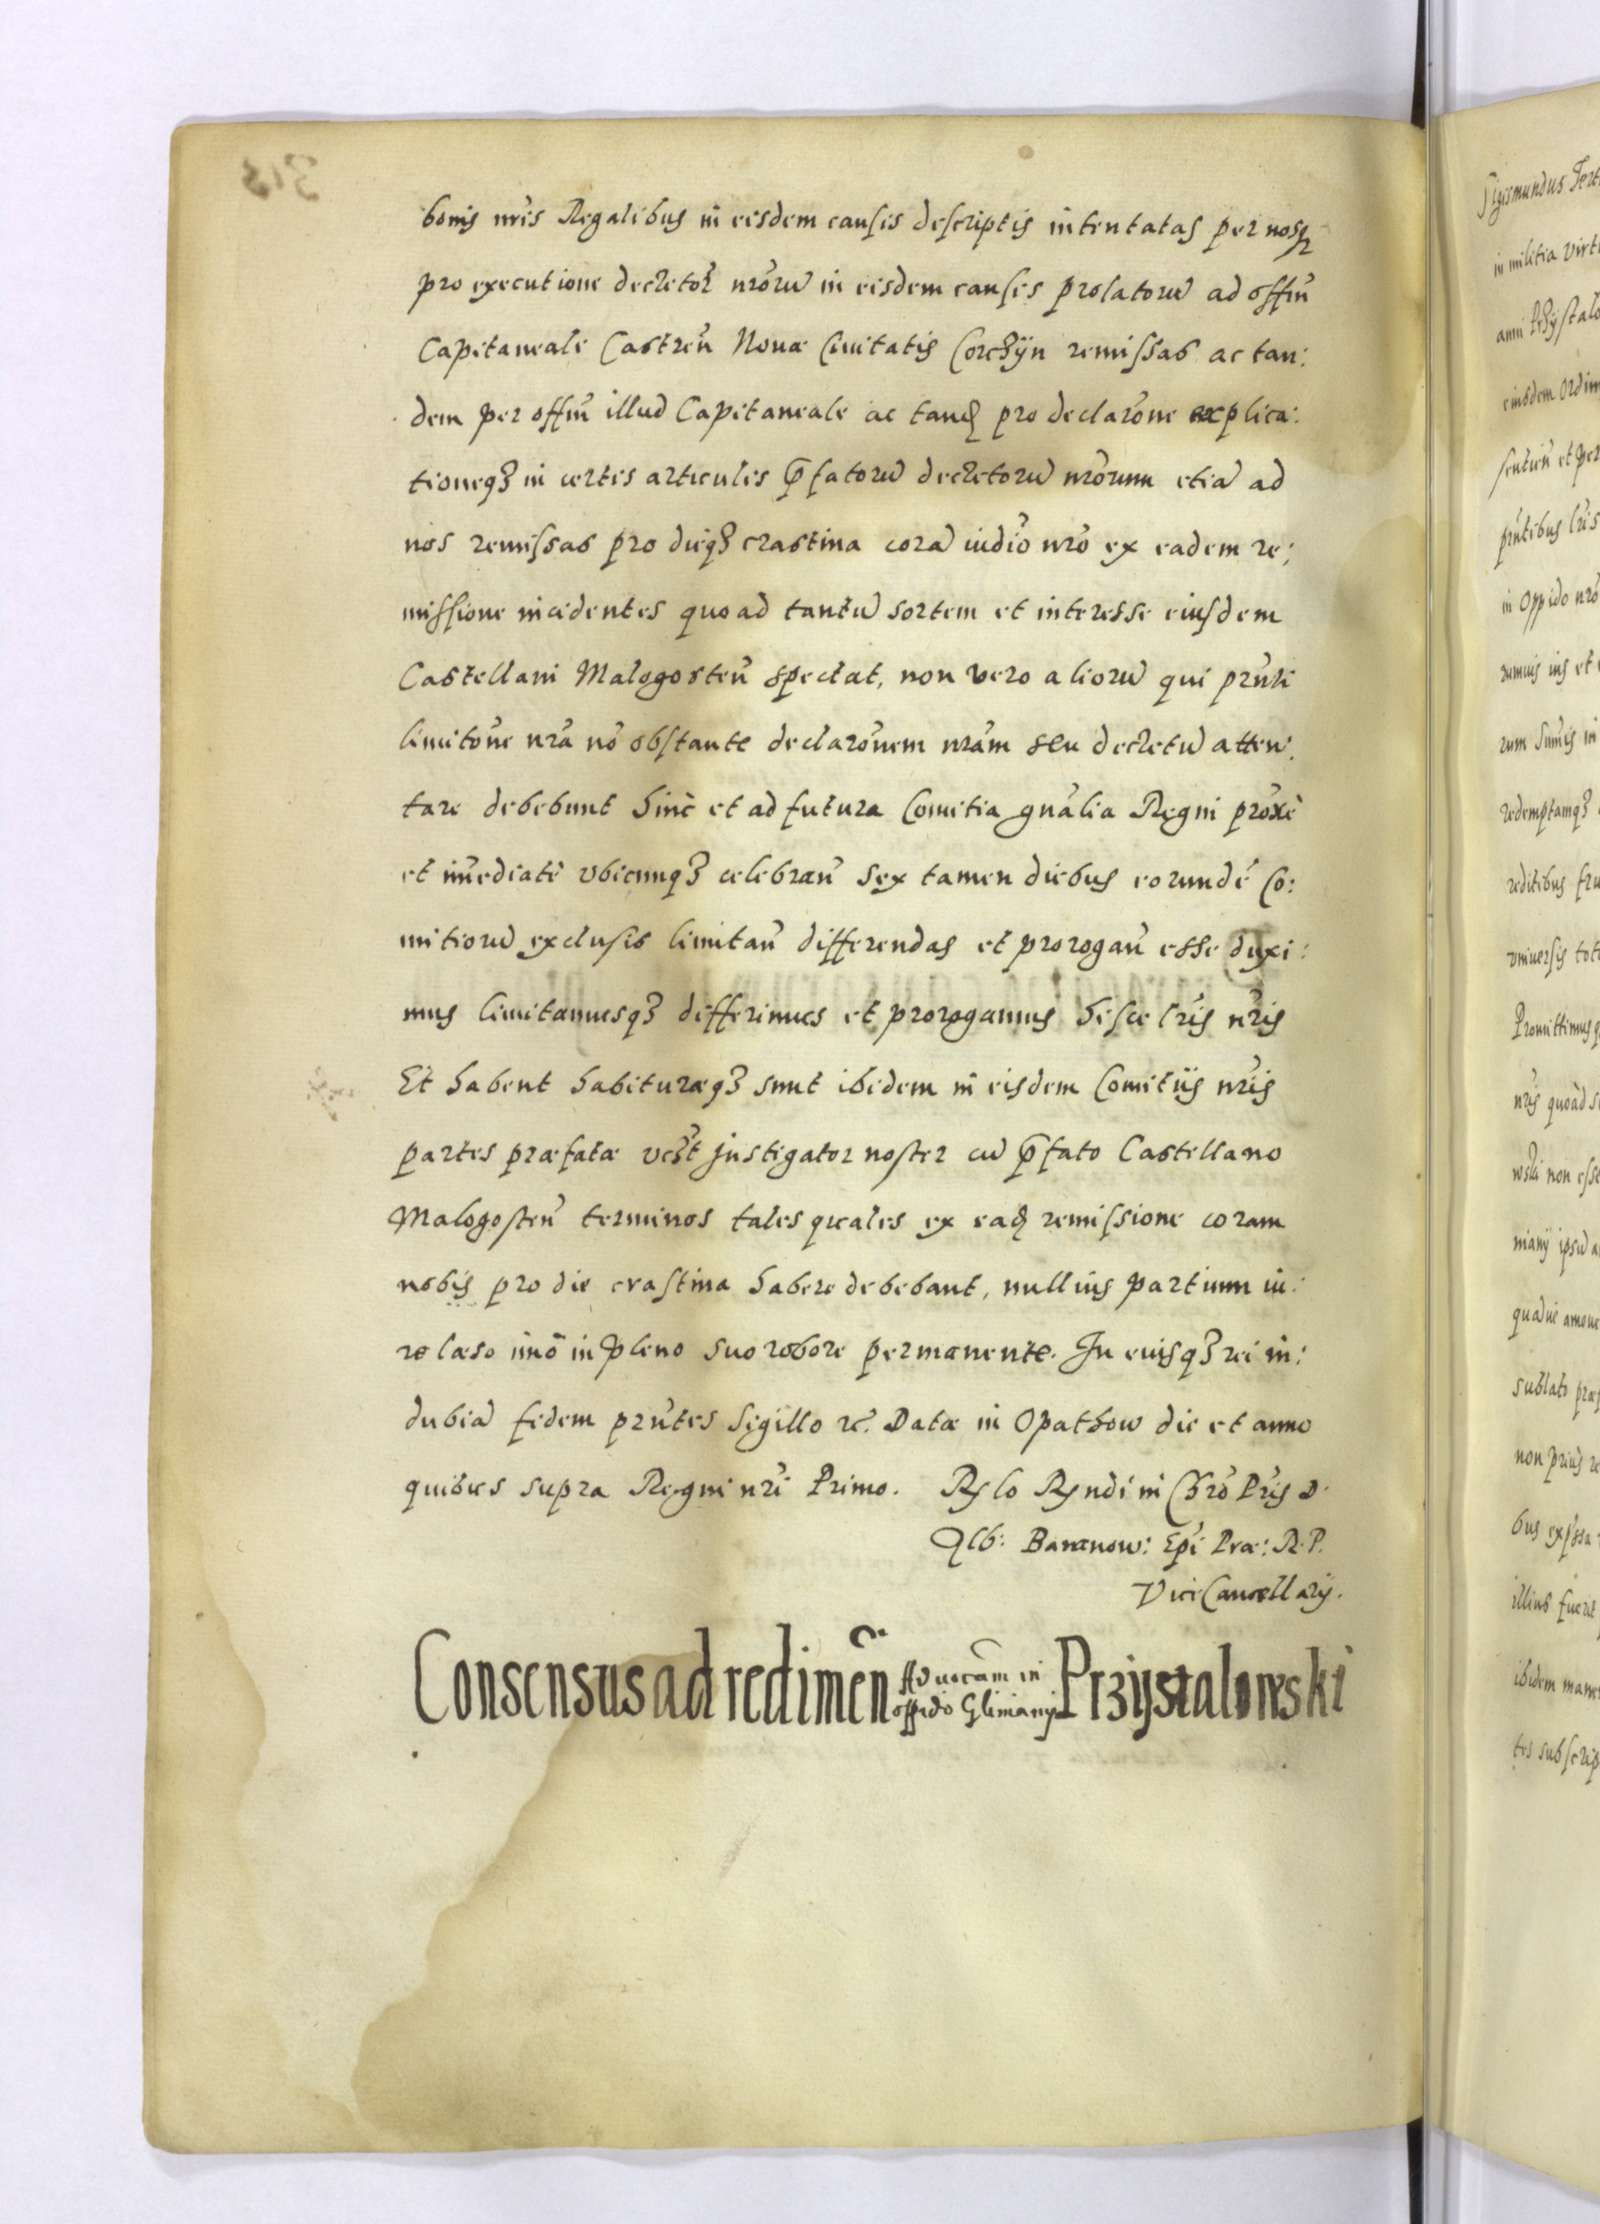 bonis nris Regalibus in eisdem causis descriptis intentatas per nosq
pro executione decretor nroru in eisdem causis prolatoru ad offin
Capitaneale Castren Nouæ Ciuitatis Corczÿn remissas ac tan:
dem per offin illud Capitaneale ac tand pro declarone explica:
tioneqз in certis articulis pfatoru decretoru nrorum etia ad
nos remissas pro dieqз crastina cora iudio nro ex eadem re:
missione incidentes quo ad tantu sortem et interesse eiusdem
Castellani Malogosten spectat, non vero alioru qui prnti
limitone nra no obstante declaronem nram seu decretu atten:
tare debebunt hinc et ad futura Comitia gnalia Regni proxè
et imediatè vbicunqз celebran sex tamen diebus eorundé Co:
mitioru exclusis limitan differendas et prorogan esse duxi:
mus limitamusqз differimus et prorogamus hisce lris nris
Et habent habituræqз sunt ibidem in eisdem Comitijs nris
partes præfatæ vczt Instigator noster cu pfato Castellano
Malogosten terminos tales quales ex ead remissione coram
nobis pro die crastina habere debebant, nullius partium iu:
re læso imo in pleno suo robore permanente. In cuiusqз rei in:
dubia fidem prntes Sigillo rc. Datæ in Opathow die et anno
quibus supra Regni nri Primo. Rslo Rsndi in Chro Pris D.
Alb: Baranow: Epi Præ: R. P.
ViceCancellarij.
Consensus ad redimen Aduocam in oppido Glinianÿ Przÿstalowski
Sigismundus Terti
in militia virt
eiusdem Ordin
sentien et per
prntibus lris
in Oppido nro
rum sumis in
redemptamqз
reditibus fru
vniuersis tot
Promittimus q
nris quoad s
wski non esse
nianÿ ipsu a
sublato præ
non prius re
bus expssa
illius fuerit
ibidem mane
tes subscrip